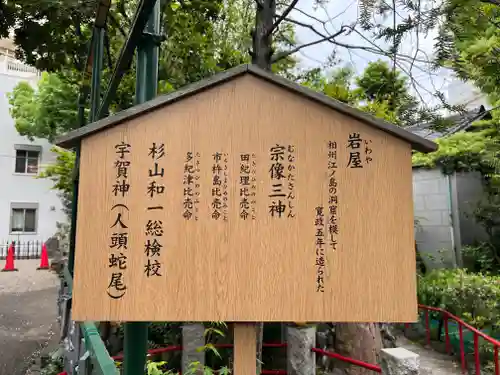 岩屋
いわや
相州江ノ島の洞窟を模して
寛政五年に造られた
宗像三神
むなかたさんしん
田紀理比売命
たぎりひめのみこと
市杵島比売命
いちきしまひめのみこと
多紀津比売命
たぎつひめのみこと
杉山和一総検校
宇賀神（人頭蛇尾）